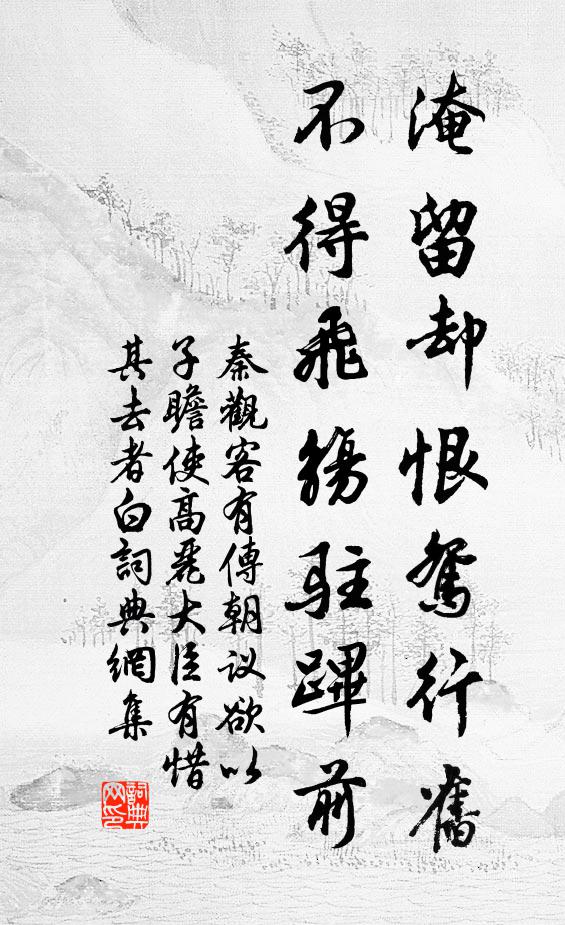 淹留却恨鴛行舊
不得飛觴駐蹕前
秦觀客有傳朝议欲以
子瞻使高麗大臣有惜
其去者白詞典網集
詞典网印